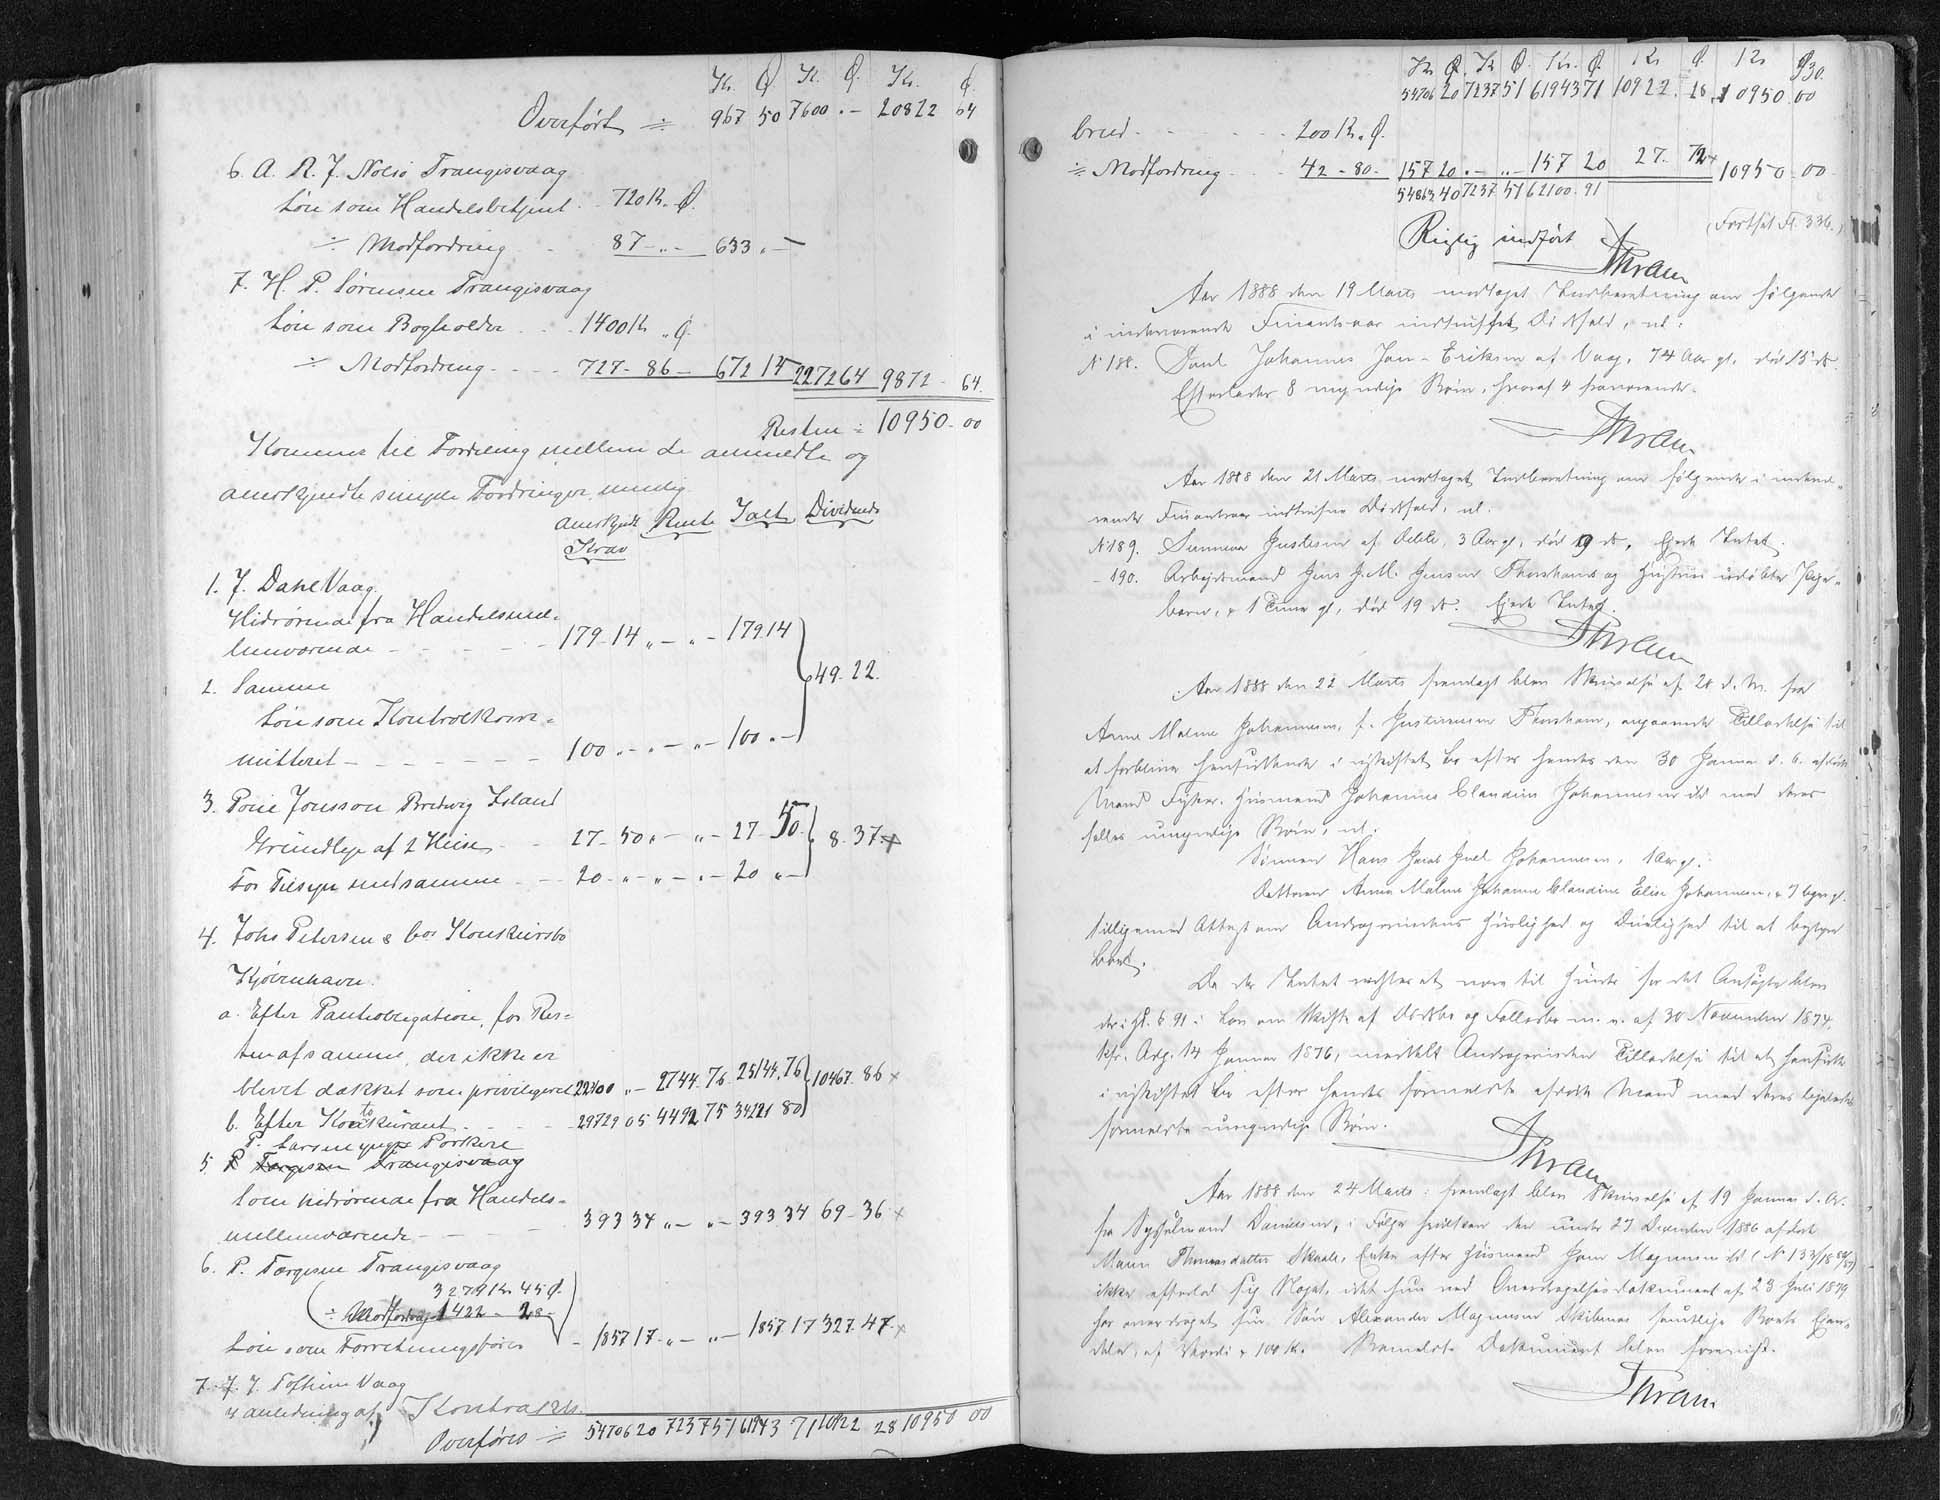 Kr. Ø. Kr. Ø. Kr. Ø.
Overført ÷ 967 50 7600 „ - 20822 64
6. A. N. J. Nolsö Trangisvaag
Løn som Handelsbetjent . . 720 Kr. „ Ø.
÷ Modfordring . . 87 - „ - 633 „ -
7. H. P. Sörensen Trangisvaag
Løn som Bogholder . . . 1400 Kr „ Ø.
÷ Modfordring . . . . 727 - 86 - 672 14 2272 64 9872 - 64.
Resten = 10950 - 00
Kommer til Fordeling mellem de anmeldte og
anerkjendte simple Fordringer, nemlig
anerkjendt Rente Ialt Dividende
Krav
1. J. Dahl Vaag.
Hidrørende fra Handelsmel-
lemværende - - - - - 179 - 14 „ - „ - 179 14
49 - 22.
2. Samme
Løn som Kontrolkom-
mitteret - - - - - - - 100 „ - „ - „ - 100 „ -
3. Jonsson Island
Grundleje af 2 Huse - - 27 - 50 „ - „ - 27 - 50. 8 - 37 x
For Tilsyn med samme - - 20 - „ - „ - „ - 20 „ -
4. Johs Petersen & Cos Konkursbo
Kjøbenhavn.
a. Efter Panteobligation, for Res-
ten af samme, der ikke er
blevet dækket som privilegeret 22400 „ - 2744 - 76 - 25144 . 76 10467 - 86 x
b. Efter Kontokurant - - - - 29729 05 4492 75 34221 80
P. Larsen yngre Porkere
5. P Tørgesen Trangisvaag
som hidrørende fra Handels-
mellemværende - - - - 393 34 „ - „ - 393 34 69 - 36 x
6. P. Tørgesen Trangisvaag
3279 Kr. 45 Ø.
÷ Modfordrg 1422 - 28 -
Løn som Forretningsfører - 1857 17 - „ - „ - 1857 17 327 - 47 x
7. J. J. Tofthim Vaag
I anledning af Kontra Kr.
Overføres = 54706 20 7237 51 61943 71 10922 28 10950 00
330.
Kr Ø. Kr Ø. Kr. Ø. Kr Ø. Kr Ø
54706 20 7237 51 61943 71 10922 . 28 10950 . 00
breed - - - - - - 200 Kr. „ Ø.
÷ Modfordring - - 42 - 80 - 157 20 „ - „ - 157 20 27 - 72 10950 - 00
54863 40 7237 51 62100 . 91
(Fortsat Fl. 336.)
Rigtig indført
Thran
Aar 1888 den 19 Marts modtaget Indberetning om følgende
i indeværende Finantsaar indtruffet Dødsfald, nl:
N 188. Poul Johannes Jan-Eriksen af Vaag, 74 Aar gl. død 15 ds.
Efterlader 8 myndige Börn, hvoraf 4 fraværende.
Thran
Aar 1888 den 21 Marts modtaget Indberetning om følgende i indevæ-
rende Finantsaar indtrufne Dødsfald, nl.
N 189. Sunneva Justesen af 3 Aar gl. død 9 ds. Ejede Intet.
- 190. Arbejdsmand Jens J. M. Jensen Thorshavn og Hustrues udøbte Pige-
barn, 1 Time gl, død 19 ds. Ejede Intet.
Thran
Aar 1888 den 22 Marts fremlagt blev Skrivelse af 20 d. M. fra
Anna Malene Johannesen, f. Justinussen Thorshavn, angaaende Tilladelse til
at forblive hensiddende i uskiftet Bo efter hendes den 30 Januar d. A. afdøde
Mand Fisker, Husmand Johannes Claudius Johannesen ibd med deres
fælles umyndige Börn, nl:
Sønnen Hans Jacob Juel Johannesen, 1 Aar gl.
Datteren Anna Malene Johanne Claudine Elise Johannesen, 7 Uger gl.
tilligemed Attest om Andragerindens Huslighed og Duelighed til at bestyre
Boet.
Da der Intet vidstes at være til Hinder for det Ansøgte blev
der i Hl. § 91 i Lov om Skifte af Dødsbo og Fællesbo m. v. af 30 November 1874,
kfr. Adg. 14 Januar 1876, meddelt Andragerinden Tilladelse til at hensidde
i uskiftet Bo efter hendes fornævnte afdøde Mand med deres ligeledes
fornævnte umyndige Börn.
Thran
Aar 1888 den 24 Marts: fremlagt blev Skrivelse af 19 Januar d. A.
fra Sysselmand Danielsen, i Følge hvilken den under 27 December 1886 afdøde
Maren Thomasdatter Skaale, Enke efter Husmand Joen Magnussen ibd (N 133/1886/87)
ikke efterlod sig Noget, idet hun ved Overdragelsesdokument af 23 Juli 1879
har overdraget sin Søn Alexander Magnussen Skibenæs samtlige Boets Eien-
dele, af Værdi 100 Kr. Bemeldte Dokument blev foreviist.
Thran.